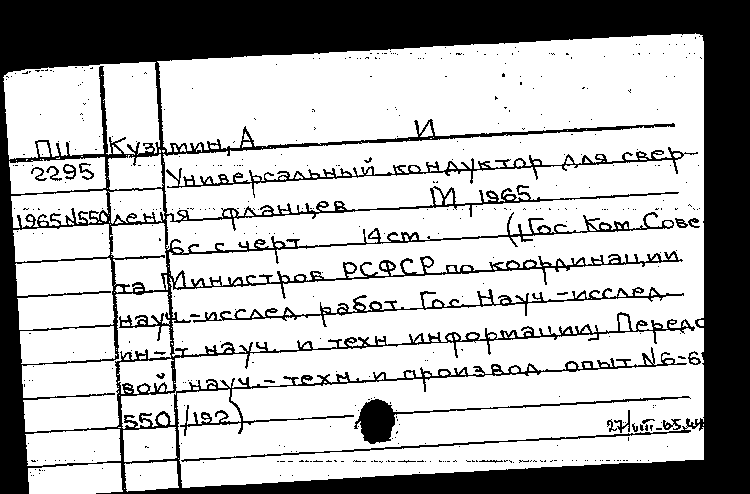 ПЦ Кузьмин, А И
2295 Универсальный кондуктор для свер-
1965 N550 ления фланцев М, 1965.
6с с черт 14 см. ([Гос. Ком. Сове
та Министров РСФСР по координации
науч.-исслед. работ. Гос. Науч.-исслед.
ин-т науч. и техн информации] Передо
вой науч.-техн. и производ. опыт. N6-65
550/192).